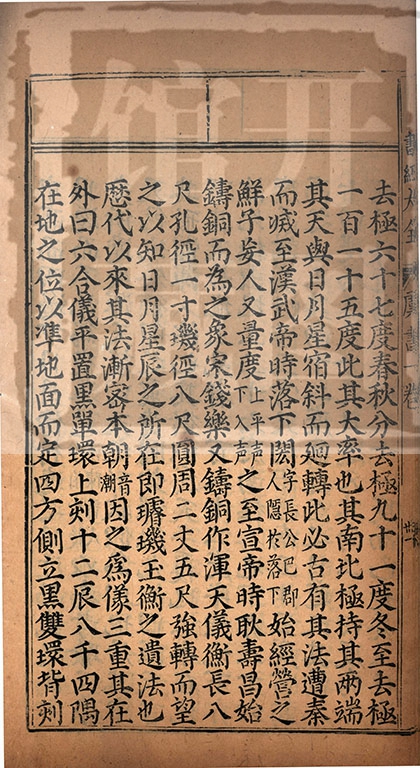 去極六十七度春秋分去極九十一度冬至去極
一百一十五度此其大率也其南北極持其兩端
其天與日月星宿斜而廻轉此必古有其法遭秦
而滅至漢武帝時落下閎字長公巴郡人隱於落下始經營之
鮮于妄人又量度上平声下入声之至宣帝時耿壽昌始
鑄銅而為之象宋錢樂又鑄銅作渾天儀衡長八
尺孔徑一寸璣徑八尺圓周二丈五尺強轉而望
之以知日月星辰之所在即璿璣玉衡之遺法也
歷代以來其法漸密本朝音潮因之為儀三重其在
外曰六合儀平置黑單環上刻十二辰八千四隅
在地之位以準地面而定四方側立黑雙環背刻
書經大全
虞書一卷